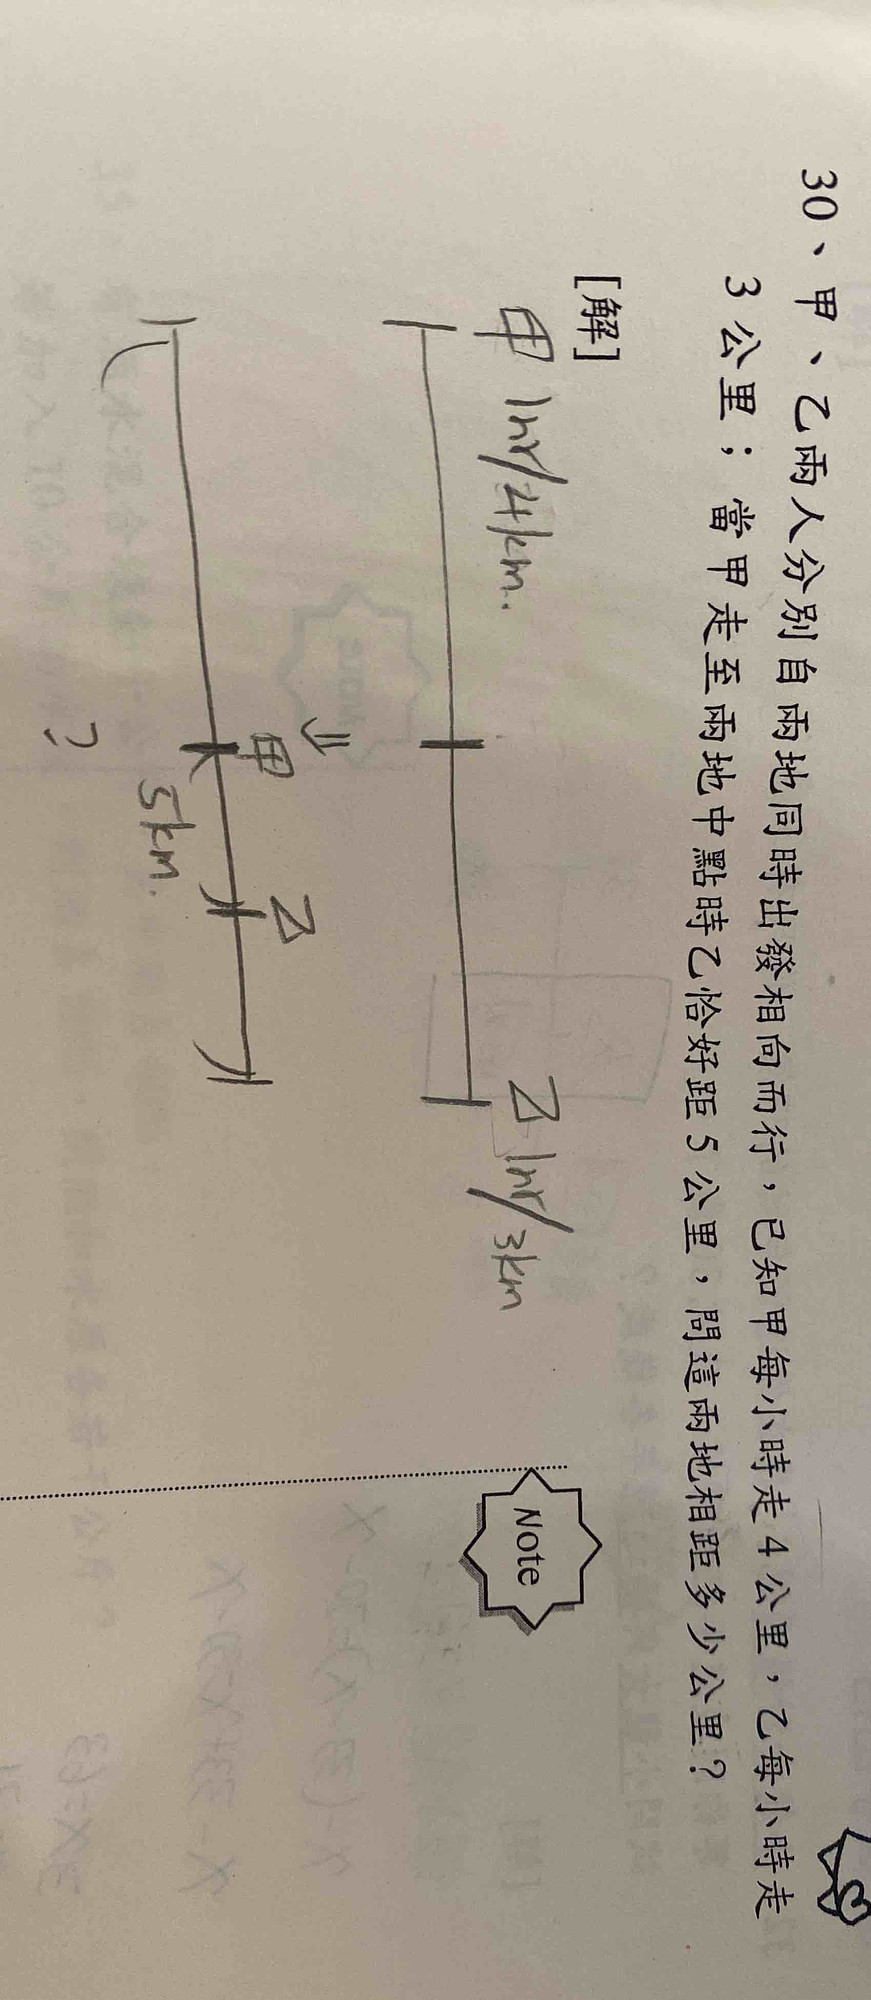 30、甲、乙兩人分別自兩地同時出發相向而行，已知甲每小時走4公里，乙每小時走
3公里；當甲走至兩地中點時乙恰好距5公里，問這兩地相距多少公里？
[解]
甲 1hr/4km.
乙 1hr/3km
甲
乙
5km.
?
Note